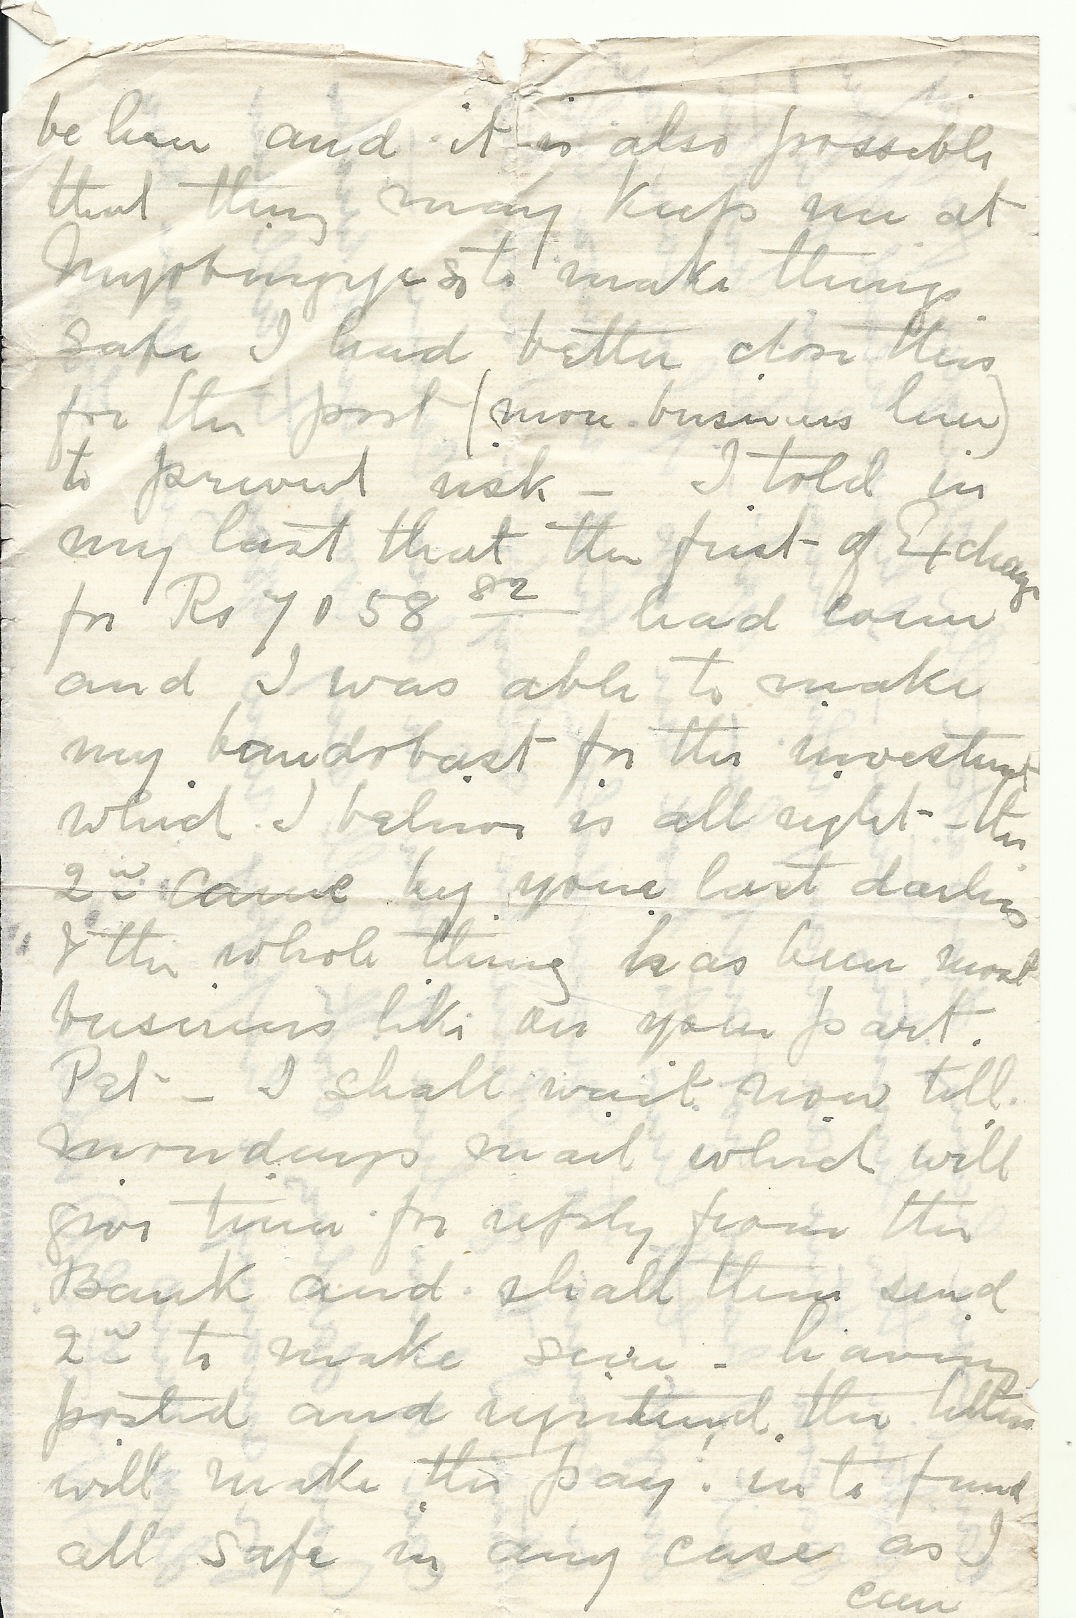 be here and it is also possible
that thing may keep me at
Myobingyi so to make things
safe I had better close this
for the post (more business here)
to prevent risk – I told in
my last that the first of Exchange
for Rs 7058 82 had come
and I was able to make
my bandobast for the investment
which I believe is all right – the
2nd came by your last darling
& the whole thing has been most
business like on your part.
Pet – I shall wait now till
Mondays mail which will
give time for reply from the
Bank and shall then send
2nd to make sure – having
posted and registered the letters
will make the pay: into fund
all safe in any case as I
can